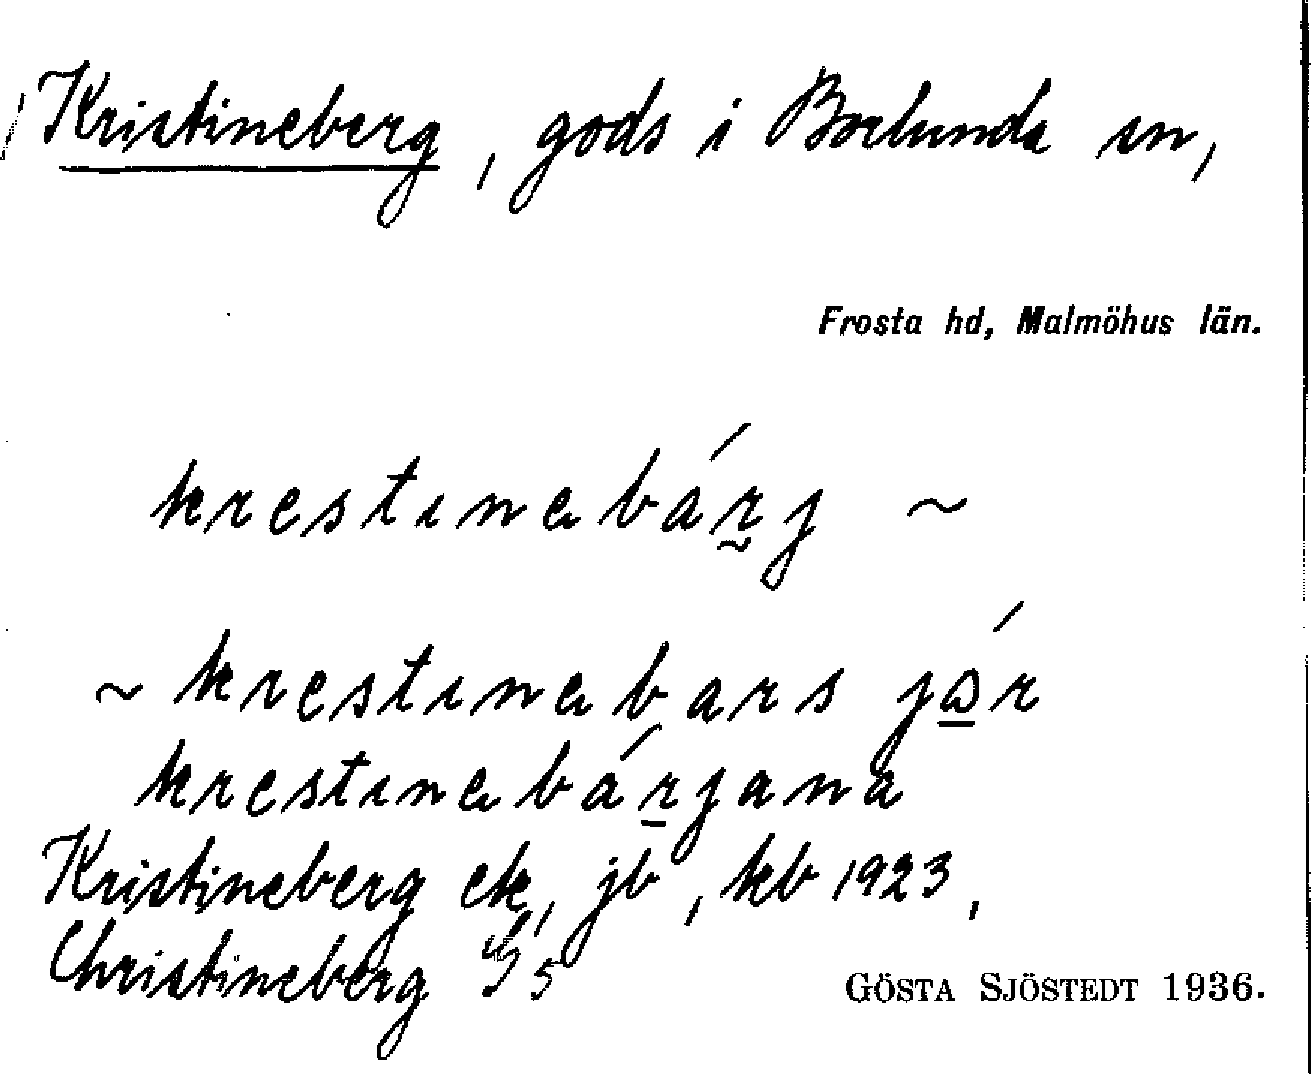 Kristineberg, gods i Borlunda sn,
Frosta hd, Malmöhus län.
krestınabár̰j ~
~ krestınabars jɷ̲́r
krestınabár̲jana
Kristineberg ek, jb, kb 1923,
Christineberg 5
GÖSTA SJÖSTEDT 1936.